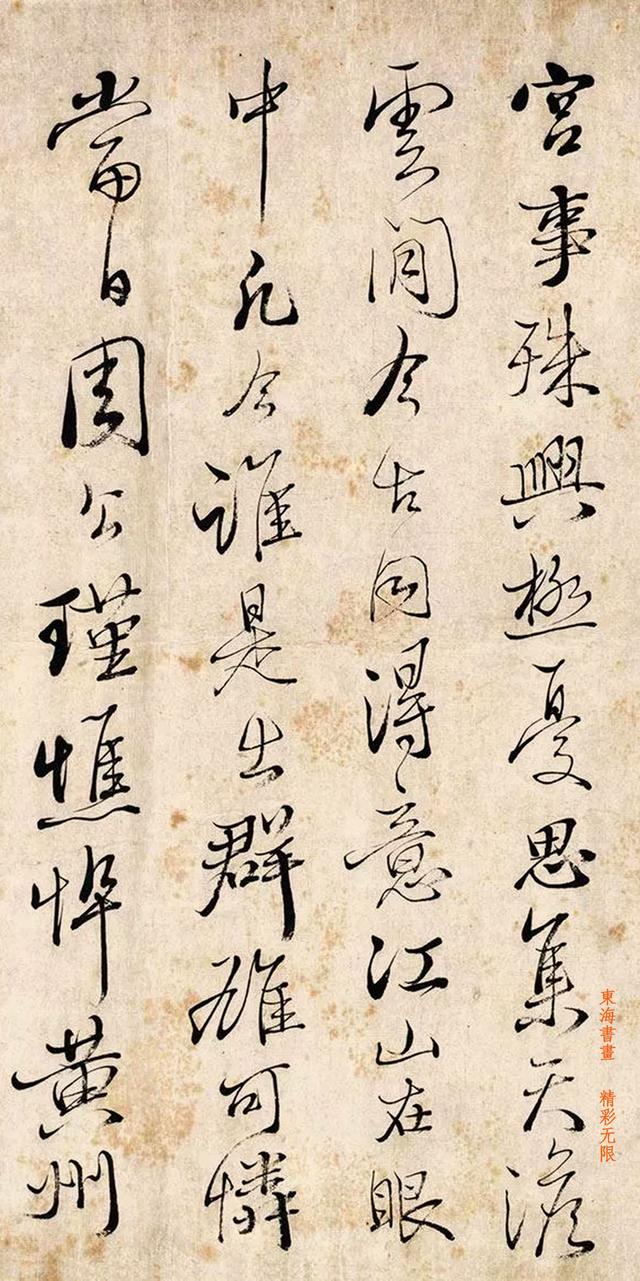 宮事殊興極憂思集天澹
雲閒今古同得意江山在眼
中凡今誰是出群雄可憐
當日周公瑾憔悴黃州
東海書畫 精彩无限